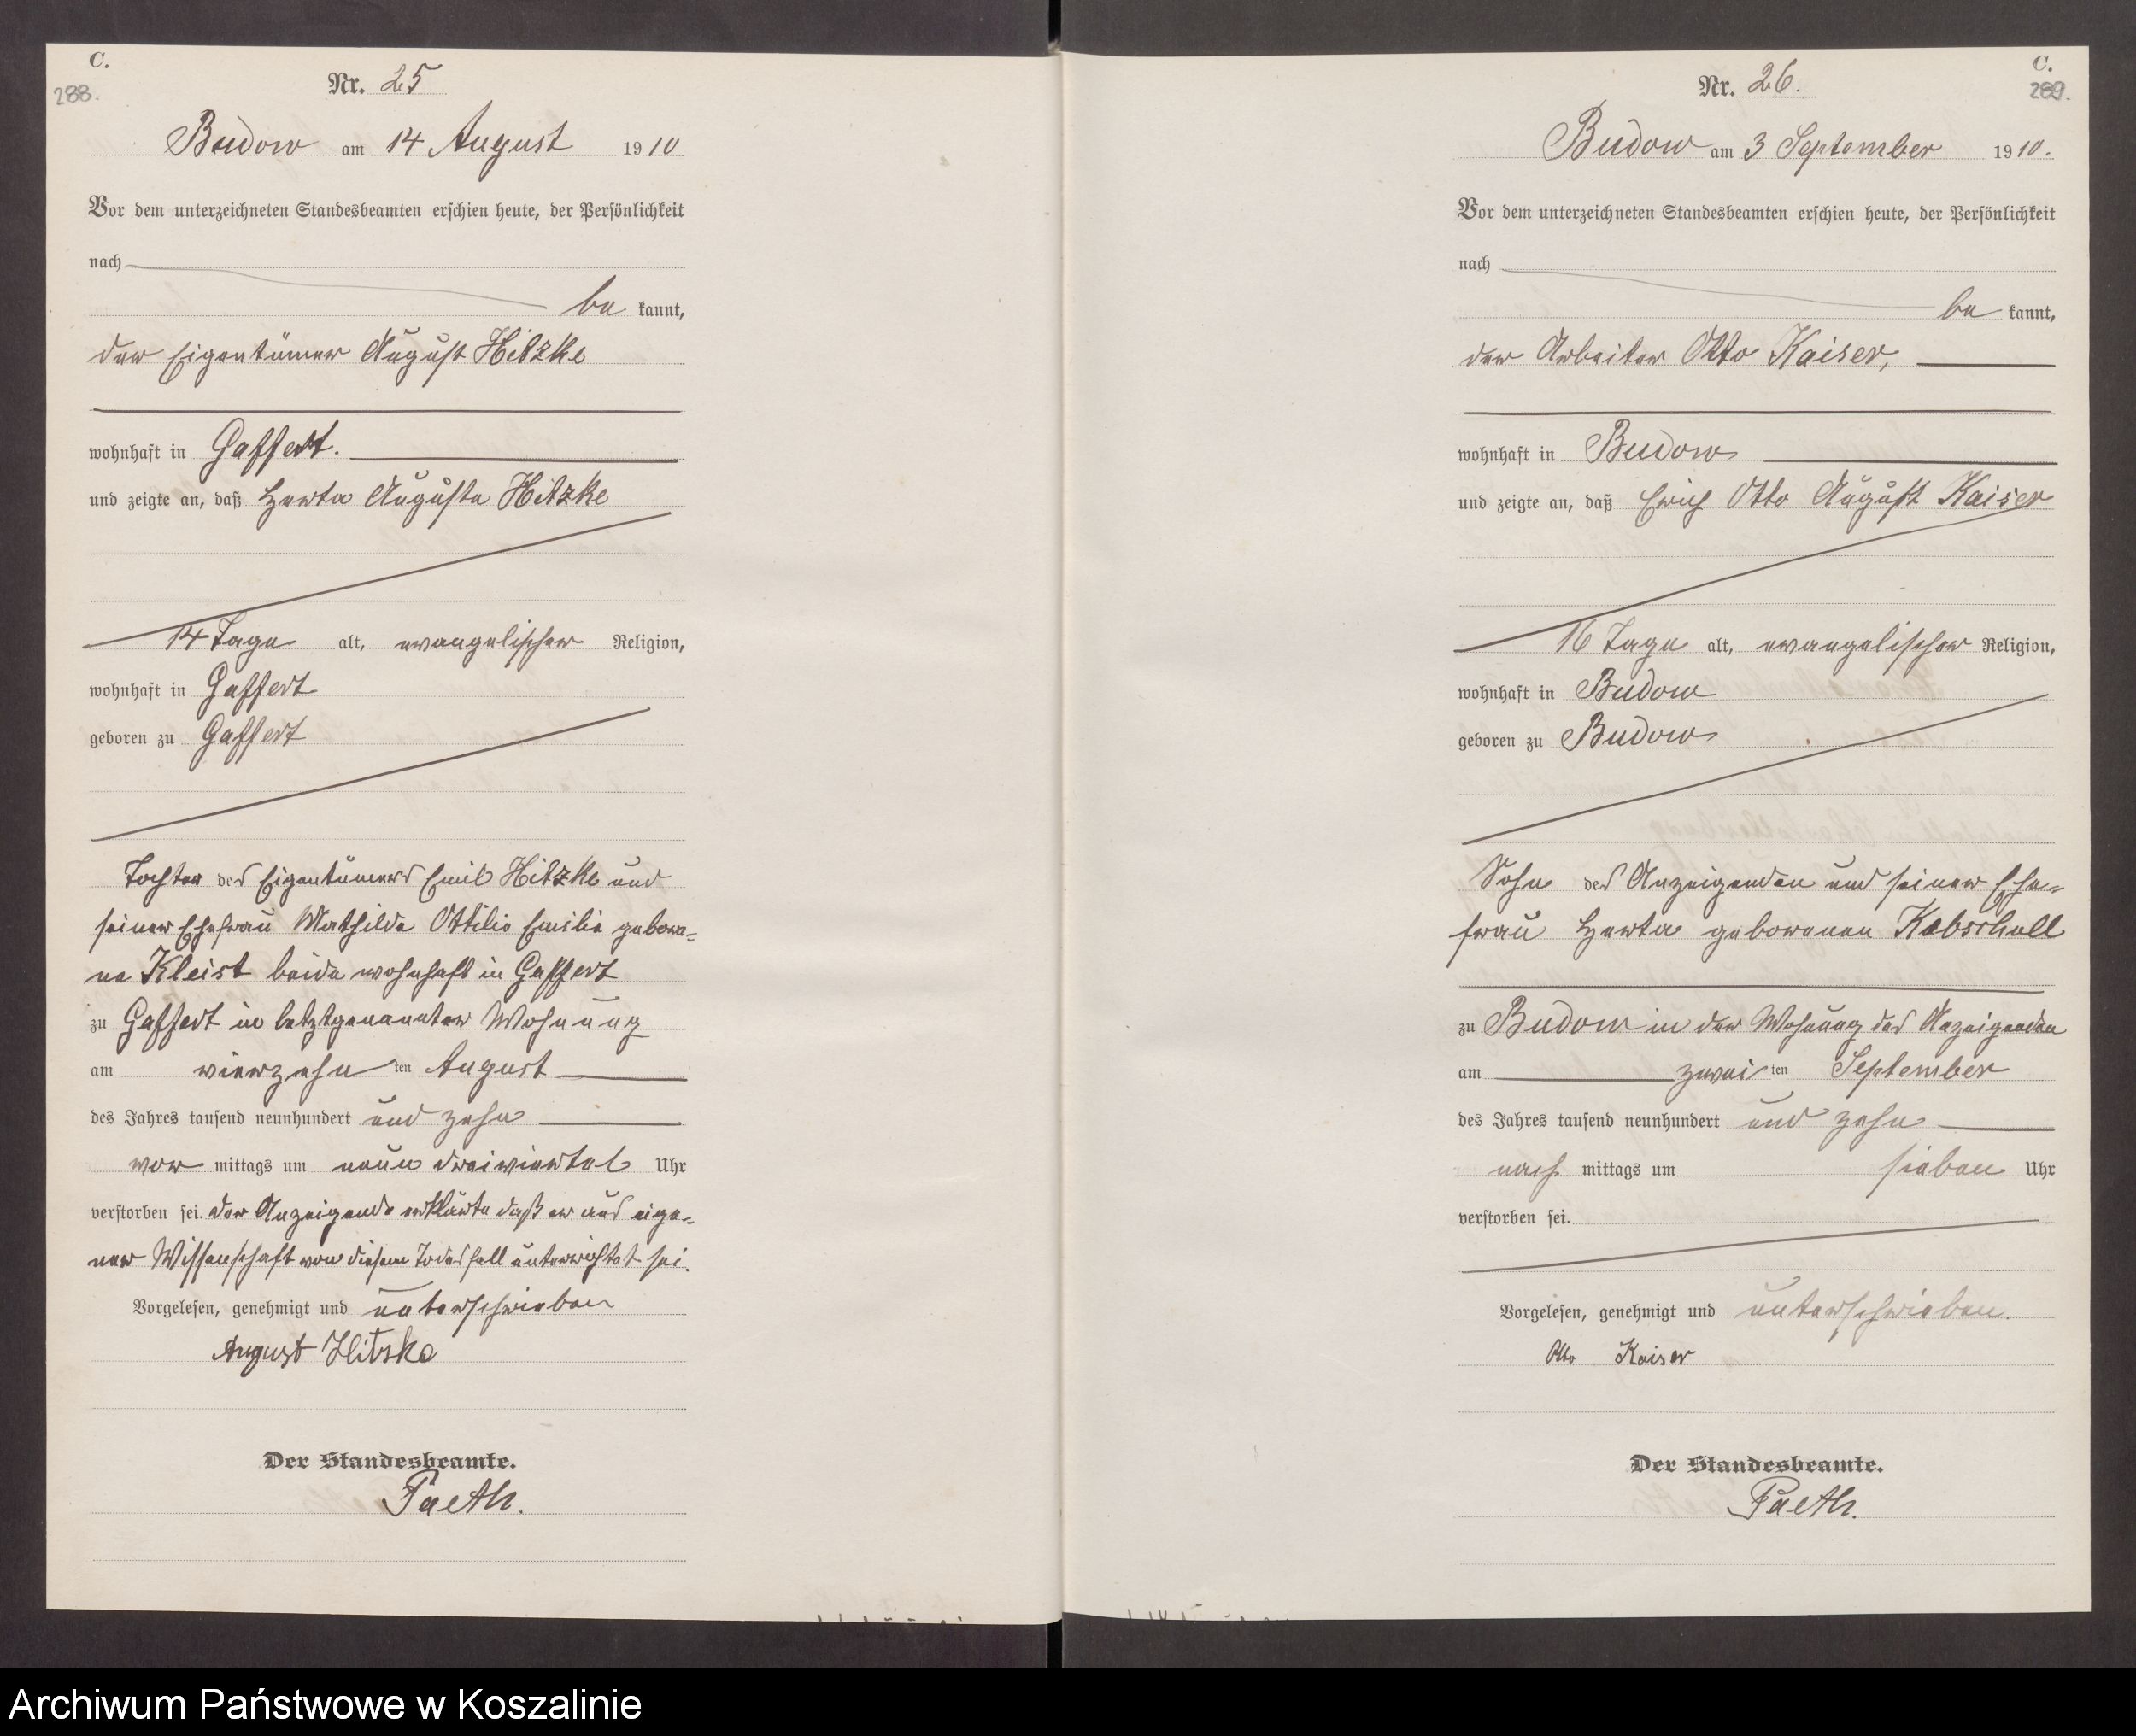 C.
288.
Nr. 25
Budow am 14 August 1910
Vor dem unterzeichneten Standesbeamten erschien heute, der Persönlichkeit
nach
be kannt,
der Eigentümer August Hitzke
wohnhaft in Gaffert.
und zeigte an, daß Herta Auguste Hitzke
14 Tage alt, evangelischer Religion,
wohnhaft in Gaffert
geboren zu Gaffert
Tochter des Eigentümers Emil Hitzke und
seiner Ehefrau Mathilde Ottilie Emilie gebore-
ne Kleist beide wohnhaft in Gaffert
zu Gaffert in letztgenannter Wohnung
am vierzehn ten August
des Jahres tausend neunhundert und zehn
vor mittags um neun dreiviertel Uhr
verstorben sei. Der Anzeigende erklärte daß er aus eige-
ner Wissenschaft von diesem Todesfall unterrichtet sei.
Vorgelesen, genehmigt und unterschrieben
August Hitzke
Der Standesbeamte.
Paeth.
C.
289.
Nr. 26.
Budow am 3 September 1910.
Vor dem unterzeichneten Standesbeamten erschien heute, der Persönlichkeit
nach
be kannt,
der Arbeiter Otto Kaiser,
wohnhaft in Budow
und zeigte an, daß Erich Otto August Kaiser
16 Tage alt, evangelischer Religion,
wohnhaft in Budow
geboren zu Budow
Sohn des Anzeigenden und seiner Ehe-
frau Herta geborenen Kebschull
zu Budow in der Wohnung des Anzeigenden
am zwei ten September
des Jahres tausend neunhundert und zehn
nach mittags um sieben Uhr
verstorben sei.
Vorgelesen, genehmigt und unterschrieben.
Otto Kaiser
Der Standesbeamte.
Paeth.
Archiwum Państwowe w Koszalinie